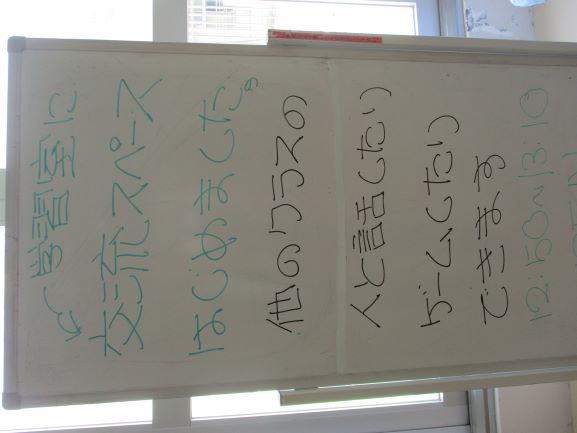 学習室に
交流スペース
はじめました。
他のクラスの
人と話したり
ゲームしたり
できます
12:50〜13:10